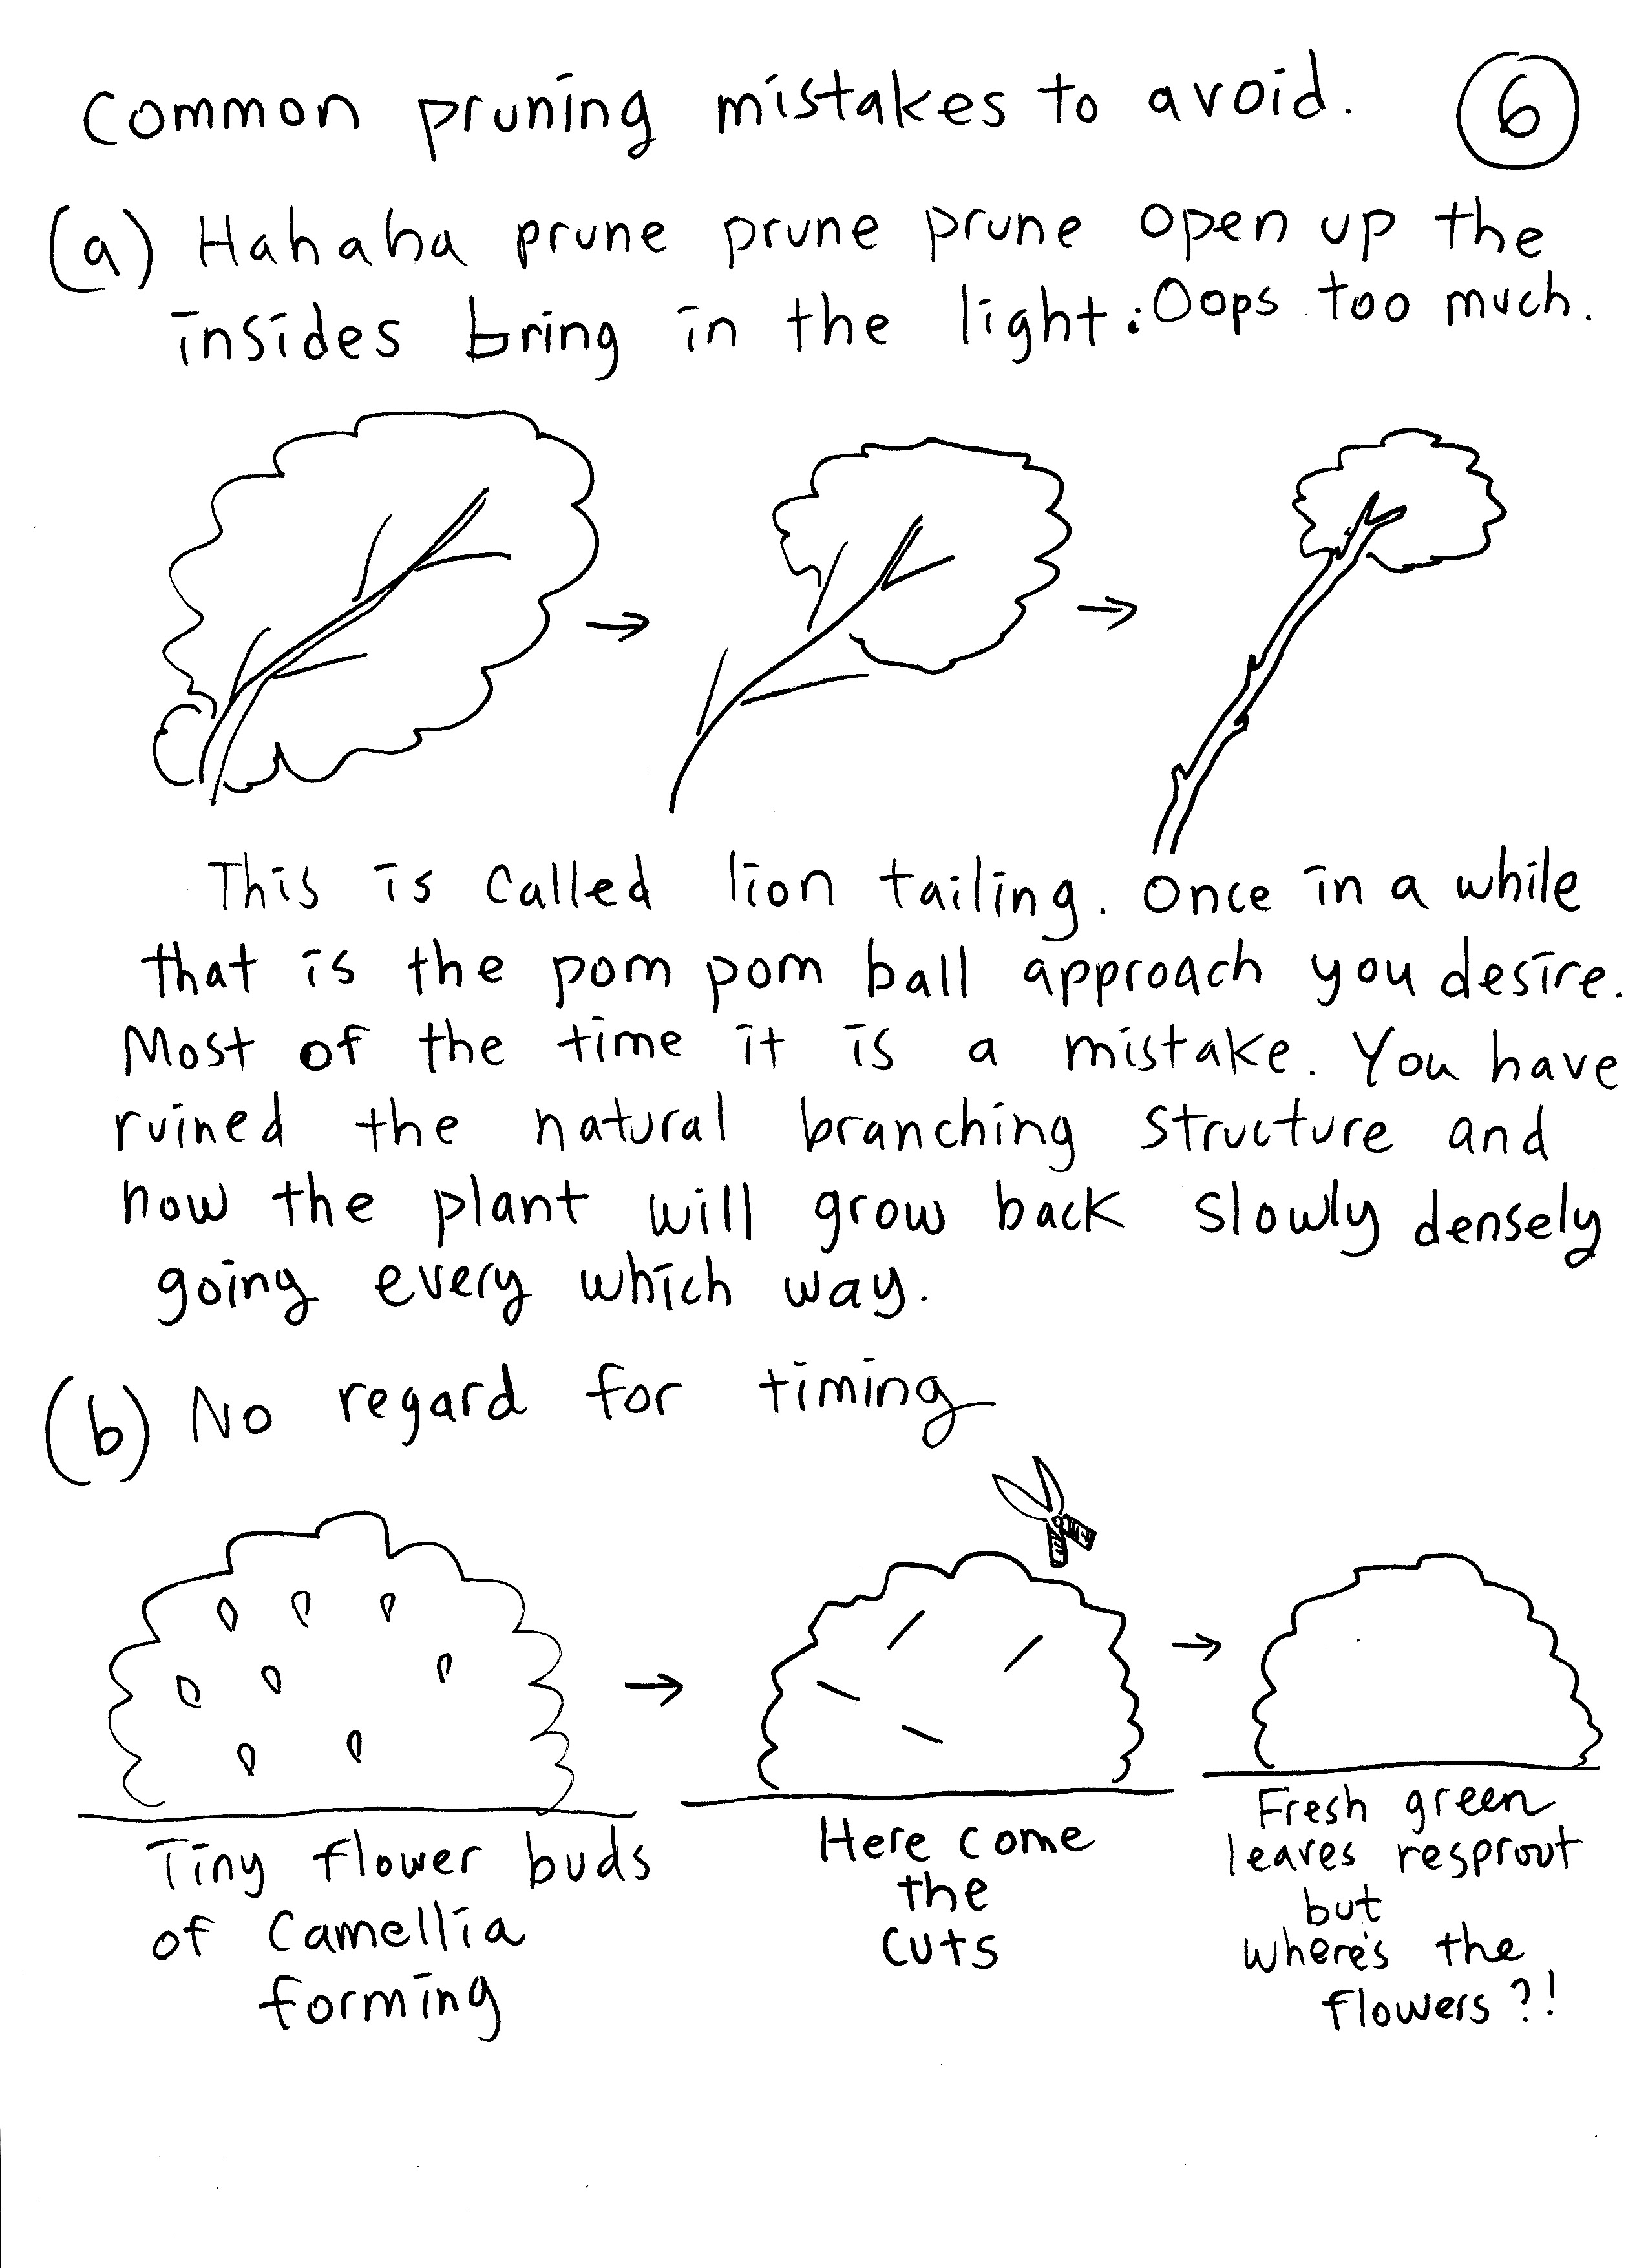 Common pruning mistakes to avoid. 6
(a) Hahaha prune prune prune open up the
insides bring in the light: Oops too much.
This is called lion tailing. Once in a while
that is the pom pom ball approach you desire.
Most of the time it is a mistake. You have
ruined the natural branching structure and
now the plant will grow back slowly densely
going every which way.
(b) No regard for timing
Tiny flower buds
of Camellia
forming
Here come
the
cuts
Fresh green
leaves resprout
but
where's the
flowers?!